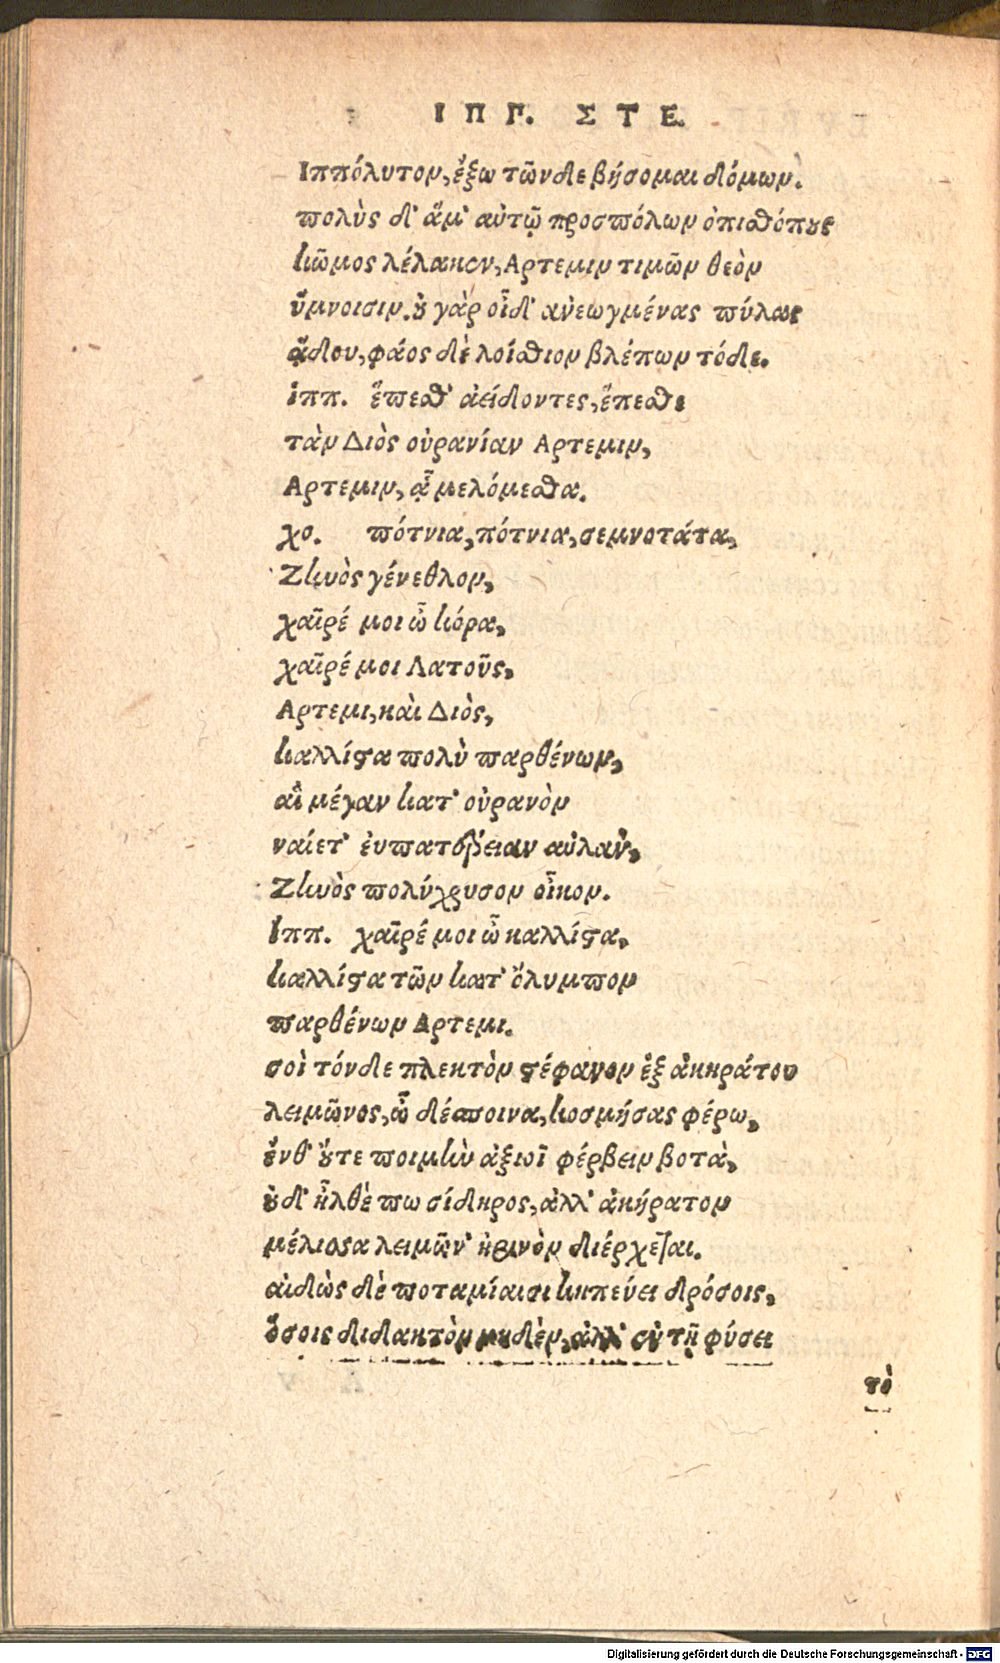 ΙΠΠ. ΣΤΕ.
Ιππόλυτον, ἔξω τῶνδε βήσομαι δόμων.
πολὺς δ' ἅμ' αὐτῷ προσπόλων ὀπιθόπους
κῶμος λέλακεν, Αρτεμιν τιμῶν θεὸν
ὕμνοισιν. οὐ γὰρ οἶδ' ἀνεωγμένας πύλας
ᾅδου, φάος δὲ λοίσθιον βλέπων τόδε.
ἱππ. ἕπεσθ' ἀείδοντες, ἕπεσθε
τὰν Διὸς οὐρανίαν Αρτεμιν,
Αρτεμιν, ᾇ μελόμεσθα.
χο. πότνια, πότνια, σεμνοτάτα,
Ζηνὸς γένεθλον,
χαῖρέ μοι ὦ κόρα,
χαῖρέ μοι Λατοῦς,
Αρτεμι, καὶ Διὸς,
καλλίστα πολὺ παρθένων,
αἳ μέγαν κατ' οὐρανὸν
ναίετ' ἐυπατέρειαν αὐλὰν,
Ζηνὸς πολύχρυσον οἶκον.
Ιππ. χαῖρέ μοι ὦ καλλίστα,
καλλίστα τῶν κατ' ὄλυμπον
παρθένων Αρτεμι.
σοὶ τόνδε πλεκτὸν στέφανον ἐξ ἀκηράτου
λειμῶνος, ὦ δέσποινα, κοσμήσας φέρω,
ἔνθ' οὔτε ποιμὴν ἀξιοῖ φέρβειν βοτὰ,
οὐδ' ἦλθέ πω σίδηρος, ἀλλ' ἀκήρατον
μέλισσα λειμῶν' ἠρινὸν διέρχεται.
αἰδὼς δὲ ποταμίαισι κηπεύει δρόσοις,
ὅσοις διδακτὸν μηδὲν, ἀλλ' ἐν τῇ φύσει
τὸ
Digitalisierung gefördert durch die Deutsche Forschungsgemeinschaft - DFG